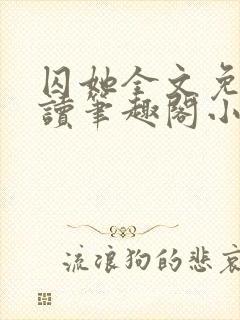 囚她全文免
读笔趣阁小
流浪狗的悲哀